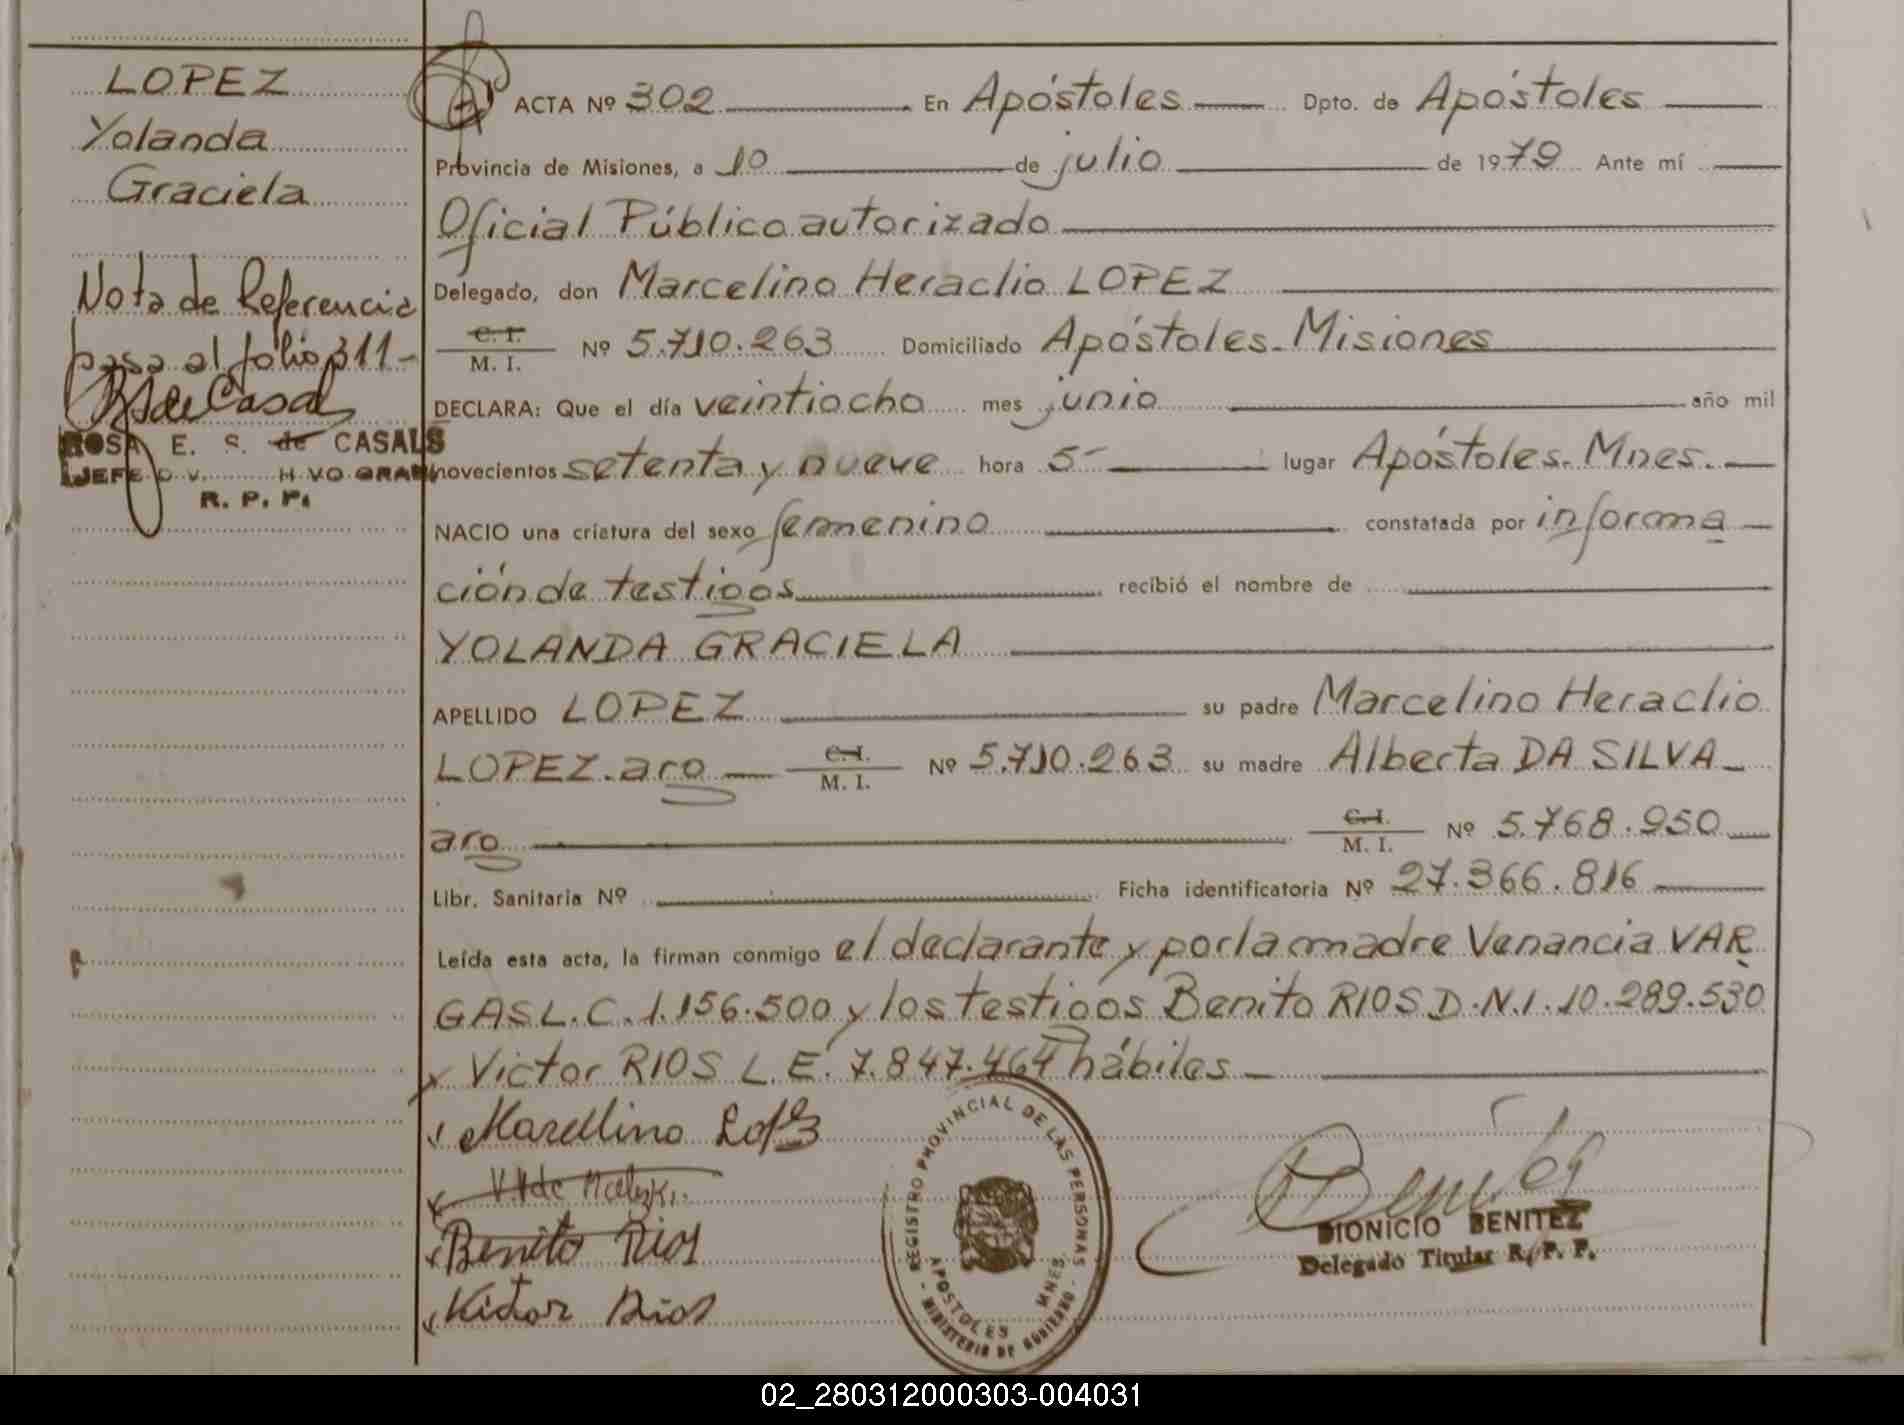 LOPEZ
Yolanda
Graciela
Nota de Referencia
pasa al folio 311-
ROSA E. S. de CASALS
JEFE
R. P. P.
ACTA Nº 302 En Apóstoles Dpto. de Apóstoles
Provincia de Misiones, a 10 de julio de 1979 Ante mí
Oficial Público autorizado
Delegado, don Marcelino Heraclio LOPEZ
C. I.
M. I.
Nº 5.710.263 Domiciliado Apóstoles. Misiones
DECLARA: Que el día veintiocho mes junio año mil
novecientos setenta y nueve hora 5 lugar Apóstoles. Mnes.
NACIO una criatura del sexo femenino constatada por informa
ción de testigos recibió el nombre de
YOLANDA GRACIELA
APELLIDO LOPEZ su padre Marcelino Heraclio
LOPEZ. arg C.I. M. I. Nº 5.710.263 su madre Alberta DA SILVA
arg C.I. M. I. Nº 5.768.950
Libr. Sanitaria Nº Ficha identificatoria Nº 27.366.816
Leída esta acta, la firman conmigo el declarante y por la madre Venancia VAR
GAS L.C. 1.156.500 y los testigos Benito RIOS D.N.I. 10.289.530
y Victor RIOS L.E. 7.847.464 hábiles
Marcelino Lopez
Benito Rios
Victor Rios
REGISTRO PROVINCIAL DE LAS PERSONAS
APOSTOLES MNES.
MINISTERIO DE GOBIERNO
Benitez
DIONICIO BENITEZ
Delegado Titular R. P. P.
02_280312000303-004031